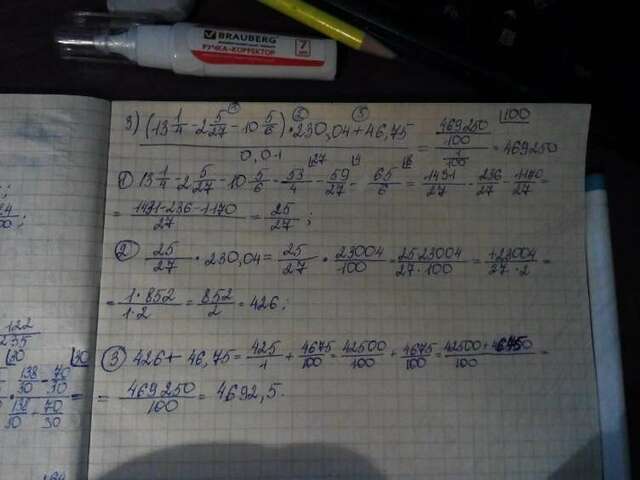 BRAUBERG
РУЧКА-КОРРЕКТОР
7
3) (13 1/4 - 2 5/27 - 10 5/6) · 230,04 + 46,75 / 0,01 = 469250/100 / 1/100 = 469250
100
① 13 1/4 - 2 5/27 - 10 5/6 = 53/4 - 59/27 - 65/6 = 1431/27 - 236/27 - 1170/27 =
= 1431-236-1170/27 = 25/27 ;
② 25/27 · 230,04 = 25/27 · 23004/100 = 25 23004/27 · 100 = 1 23004/27 · 2 =
= 1 · 852/1 · 2 = 852/2 = 426 ;
③ 426 + 46,75 = 425/1 + 4675/100 = 42500/100 + 4675/100 = 42500 + 46750/100 =
= 469250/100 = 4692,5.
122
235
138/30 - 70/30
138/30 - 70/30 =